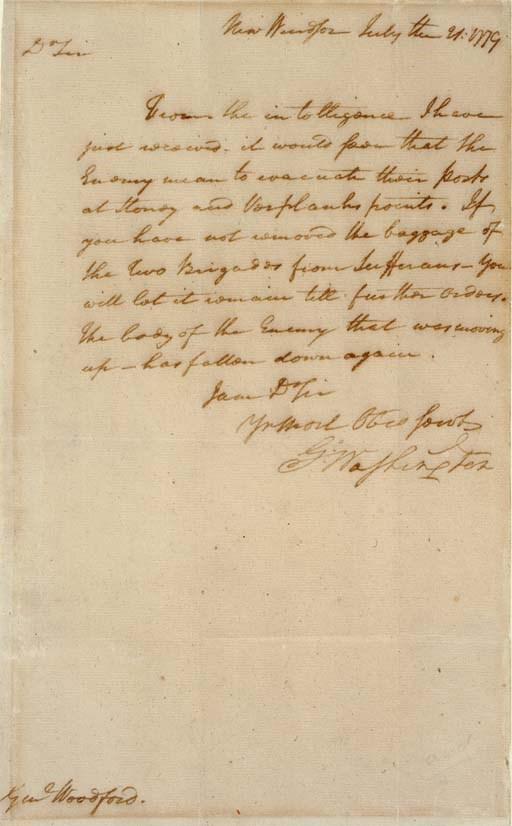 New Windsor July the 21: 1779
Dr Sir
From the intelligence I have
just received. it would seem that the
Enemy mean to evacuate their posts
at Stoney and Verplanks points. If
you have not removed the baggage of
the Two Brigades from Sufferans – You
will let it remain till further orders.
the body of the Enemy that was moving
up – has fallen down again.
I am Dr Sir
Yr Most Obed Servt
Go: Washington
Genl Woodford.